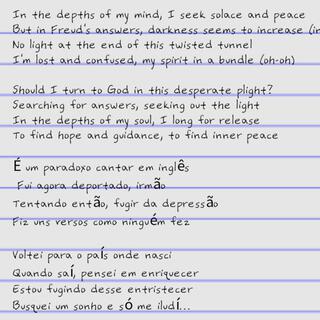 In the depths of my mind, I seek solace and peace
But in Freud's answers, darkness seems to increase (in
No light at the end of this twisted tunnel
I'm lost and confused, my spirit in a bundle (oh-oh)

Should I turn to God in this desperate plight?
Searching for answers, seeking out the light
In the depths of my soul, I long for release
To find hope and guidance, to find inner peace

É um paradoxo cantar em inglês
Fui agora deportado, irmão
Tentando então, fugir da depressão
Fiz uns versos como ninguém fez

Voltei para o país onde nasci
Quando saí, pensei em enriquecer
Estou fugindo desse entristecer
Busquei um sonho e só me iludí...